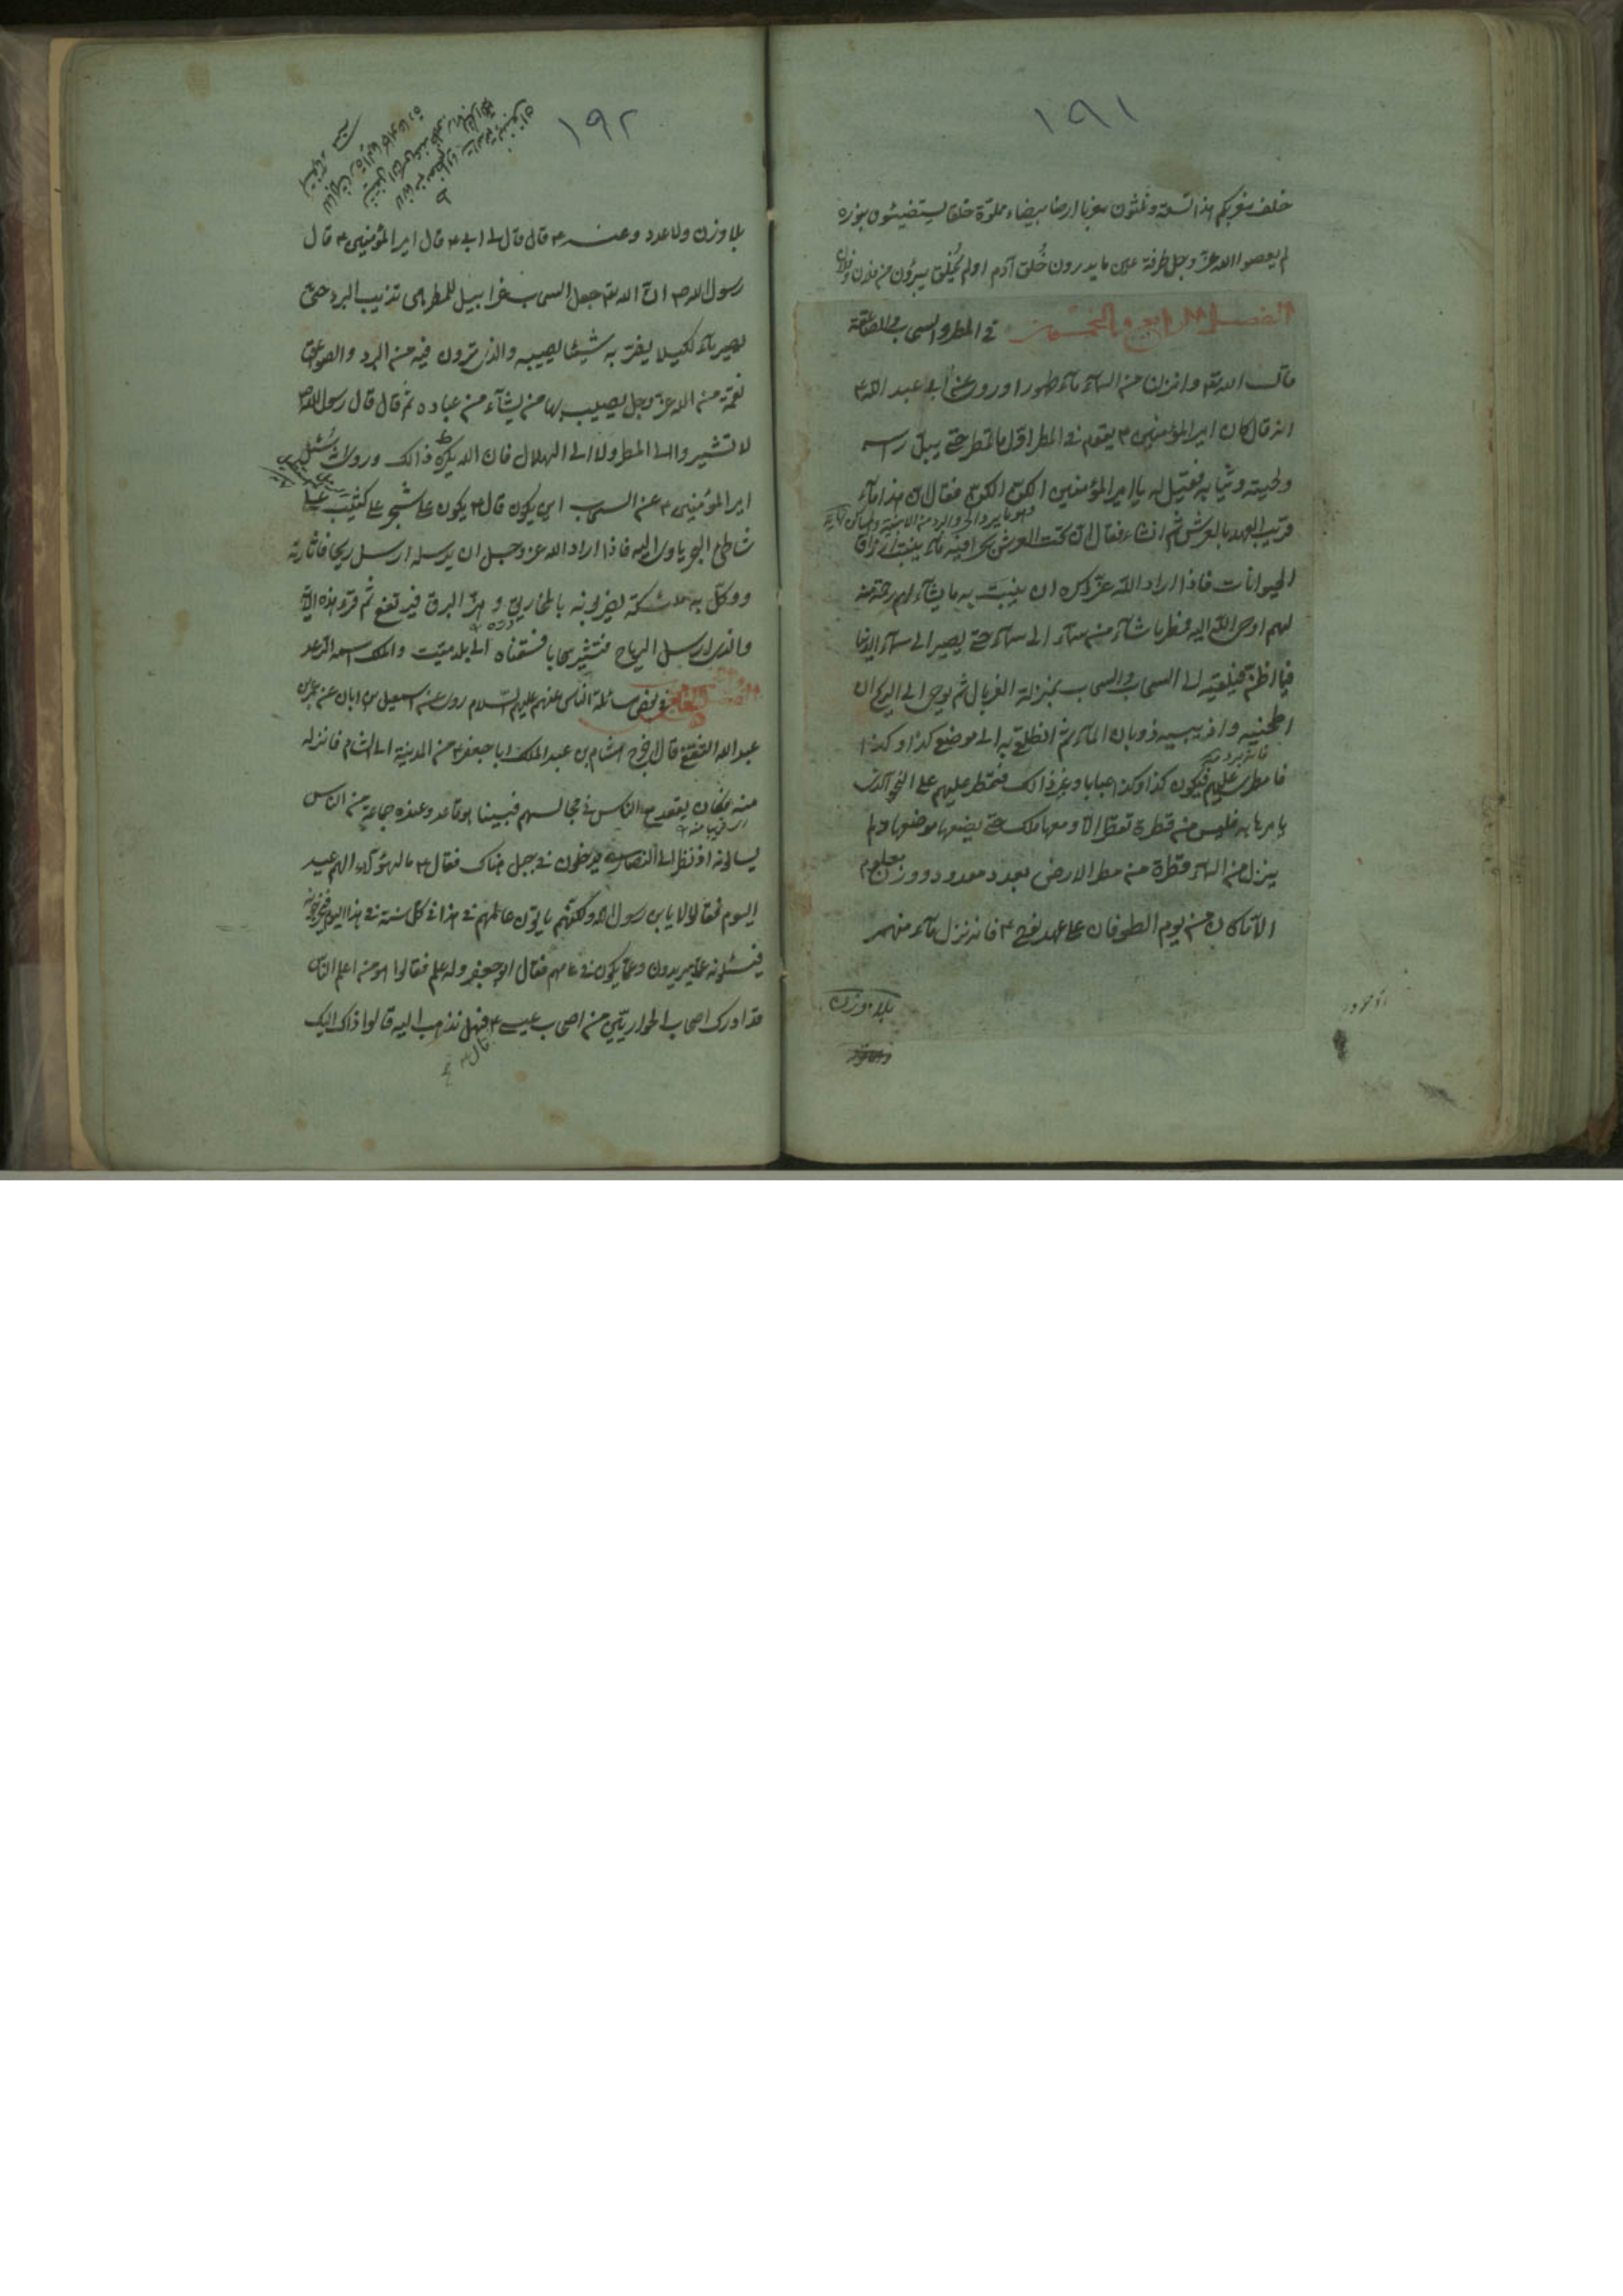 ١٩١
خلف مغربكم هذا تسعة وثلثون مغربا ارضا بيضاء مملوّة خلقا يستضيئون بنوره
لم يعصوا الله عزّ وجل طرفة عين ما يدرون خُلق آدم او لم يُخلق يبرؤن من فلان وفلان
الفصل الرابع والخمسون في المطر والسحاب والصاعقة
قال الله تع وانزلنا من السماء ماء طهورا وروى عن ابي عبد الله ع
انه قال كان امير المؤمنين ع يقوم في المطر اوّل ما تمطر حتى يبتلّ راسه
ولحيته وثيابه فقيل له يا امير المؤمنين الكنّ الكنّ فقال انّ هذا ماء
قريب العهد بالعرش ثم انشاء فقال انّ تحت العرش بحرا فيه ماء ينبت ارزاق
الحيوانات فاذا اراد الله عزّ ذكره ان ينبت به ما يشاء لهم رحمة منه
لهم اوحى الله اليه فمطر ما شاء من سماء الى سماء حتى يصير الى سماء الدنيا
فيما اظنّ فيلقيه الى السحاب والسحاب بمنزلة الغربال ثم يوحى الى الريح ان
اطحنيه واذيبيه ذوبان الماء ثم انطلقى به الى موضع كذا وكذا
فامطرى عليهم فيكون كذا وكذا عبابا وغير ذالك فتمطر عليهم على النحو الذى
يامرها به فليس من قطرة تقطر الّا ومعها ملك حتى يضعها موضعها ولم
ينزل من السماء قطرة من مطر الارض بعدد معدود ووزن معلوم
الّا ما كان من يوم الطوفان على عهد نوح ع فانه نزل ماء منهمر
بلا وزن
١٩٢
بلا وزن ولا عدد وعنه ع قال قال لى ابى ع قال امير المؤمنين ع قال
رسول الله ص انّ الله تع جعل السحاب غرابيل للمطر هى تذيب البرد حتى
يصير ماء لكيلا يضرّ به شيئا يصيبه والذى ترون فيه من البرد والصواعق
نقمة من الله عزّ وجل يصيب بها من يشاء من عباده ثم قال قال رسول الله ص
لا تشيروا الى المطر ولا الى الهلال فان الله يكره ذالك وروى سُئل
امير المؤمنين ع عن السحاب اين يكون قال ع يكون على شجر على كثيب على
شاطئ البحر ياوى اليه فاذا اراد الله عز وجل ان يرسله ارسل ريحا فاثارته
ووكّل به ملائكة يضربونه بالمخاريق وهو البرق فيرتفع ثم قرء هذه الآية
والله الذى ارسل الرياح فتثير سحابا فسقناه الى بلد ميّت والملك اسمه الرّعد
في بعض مسائلة الناس عنهم عليهم السّلام روى عن اسمعيل بن ابان عن عمر بن
عبد الله الثقفى قال اخرج هشام بن عبد الملك ابا جعفر ع من المدينة الى الشام فانزله
منه فكان يقعد مع الناس في مجالسهم فبينا هو قاعد وعنده جماعة من الناس
يسالونه اذ نظر الى النصارى يدخلون في جبل هناك فقال ع ما لهؤلاء الهم عيد
اليوم فقالوا لا يابن رسول الله ولكنّهم ياتون عالمهم في هذا في كل سنة في هذا اليوم
فيسئلونه عمّا يريدون وعمّا يكون في عامهم فقال ابو جعفر وله علم فقالوا هو من اعلم الناس
قد ادرك اصحاب الحواريّين من اصحاب عيسى ع فهل نذهب اليه قالوا ذاك اليك
قال ع